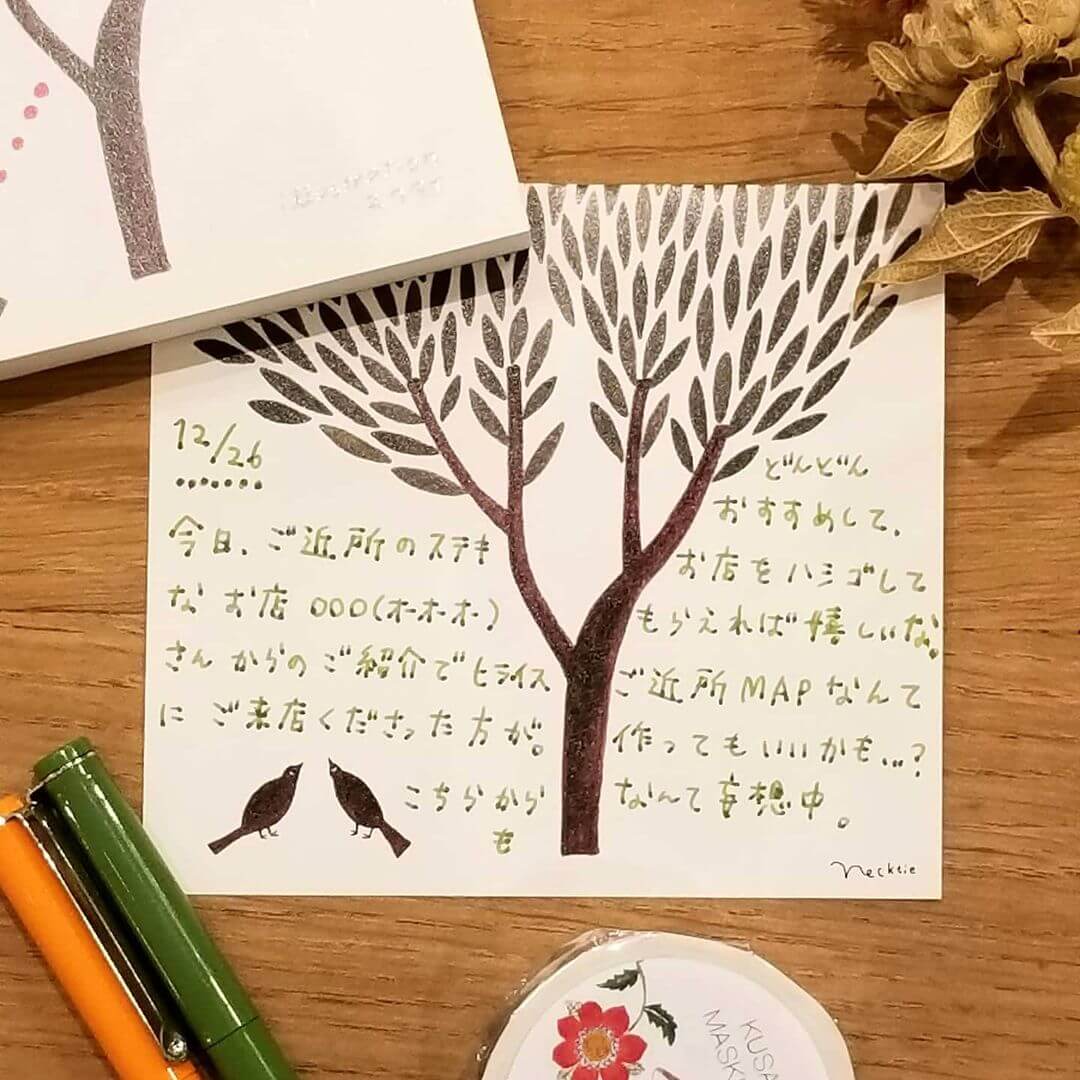 12/26
今日、ご近所のステキ
な お店 OOO(オーオーオー)
さんからのご紹介でヒライス
にご来店くださった方が。
こちらから
も
どんどん
おすすめして、
お店をハシゴして
もらえれば嬉しいな。
ご近所MAPなんて
作ってもいいかも...?
なんて妄想中。
Necktie
KUSA
MASK